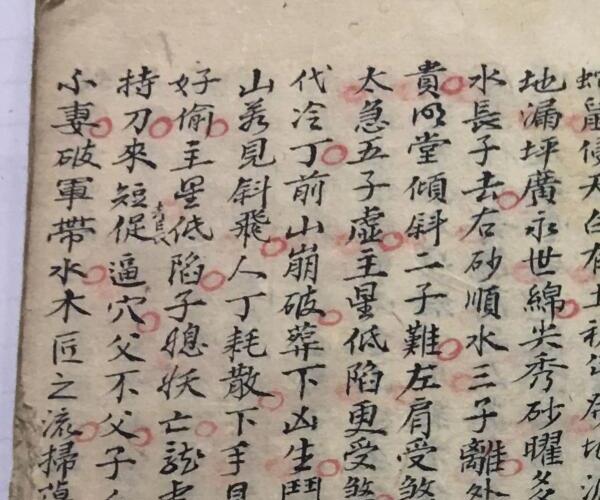 蛇鼠侵天白有土
地漏坪廣永世綿尖秀砂曜多
水長子去右砂順水三子離外
貴明堂傾斜二子難左肩受煞
太急五子虛主星低陷更受煞
代冷丁前山崩破葬下凶生鬥
山若見斜飛人丁耗散下手見
好偷主星低陷子媳妖亡龍虎
持刀來短促逼穴父不父子
小妻破軍帶水木匠之流掃蕩